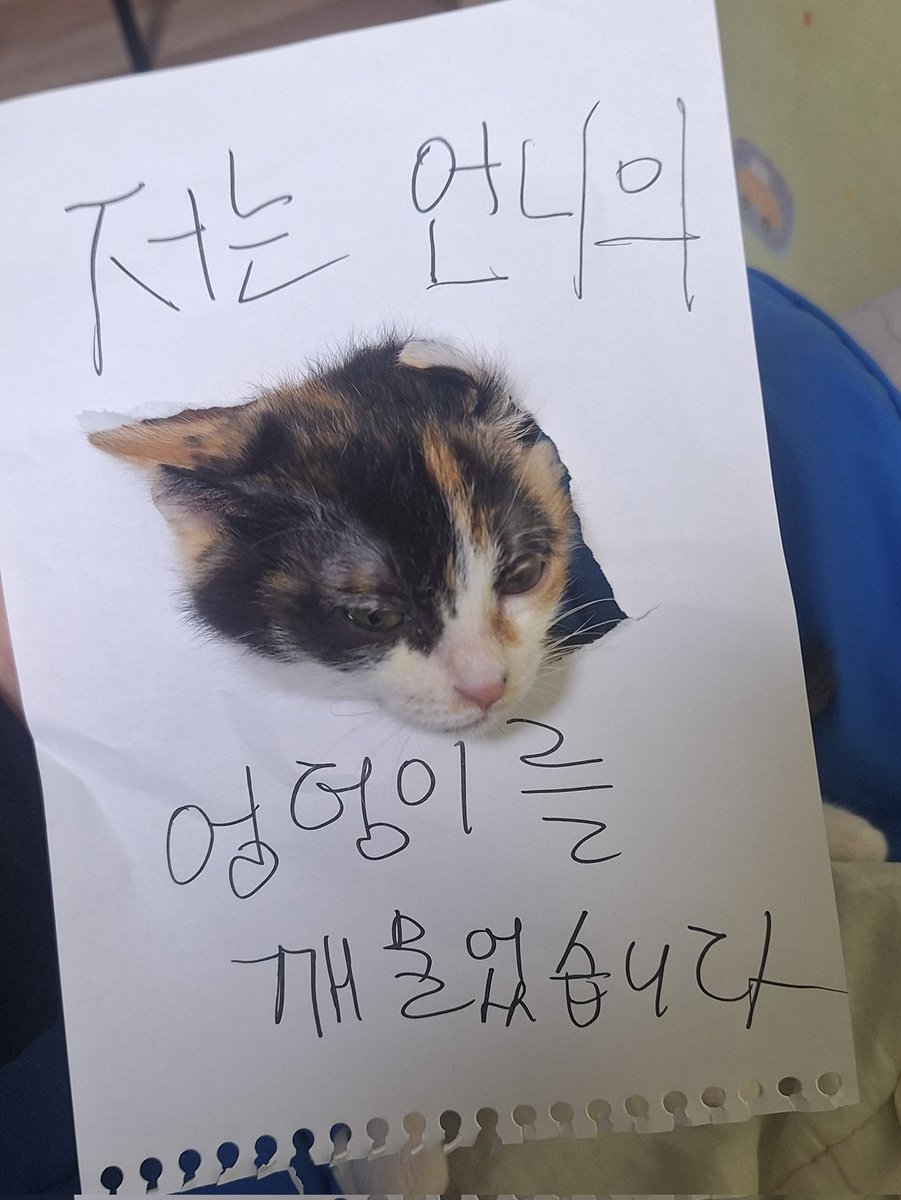 저는 언니의
엉덩이를
깨물었습니다